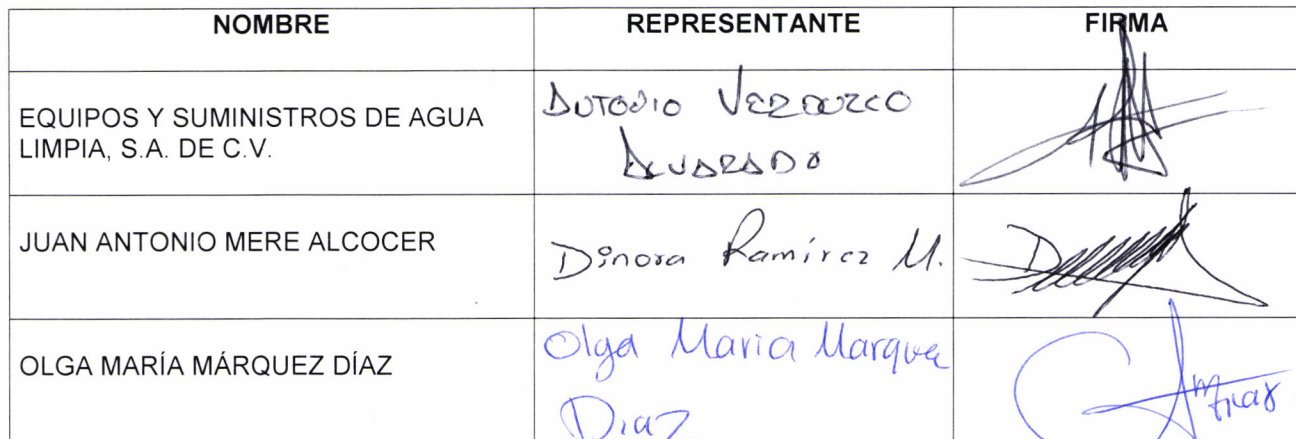 NOMBRE REPRESENTANTE FIRMA
EQUIPOS Y SUMINISTROS DE AGUA
LIMPIA, S.A. DE C.V.
ANTONIO VERDUZCO
ALVARADO
JUAN ANTONIO MERE ALCOCER
Dinora Ramírez M.
OLGA MARÍA MÁRQUEZ DÍAZ
Olga Maria Marquez
Diaz